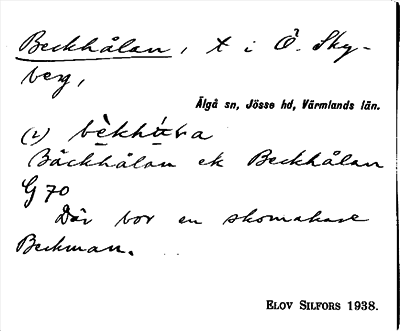 Beckhålan, t i Ö. Sky-
berg,
Älgå sn, Jösse hd, Värmlands län.
(2) bèkhúra
Bäckhålan ek Beckhålan
G 70
Där bor en skomakare
Beckman.
ELOV SILFORS 1938.